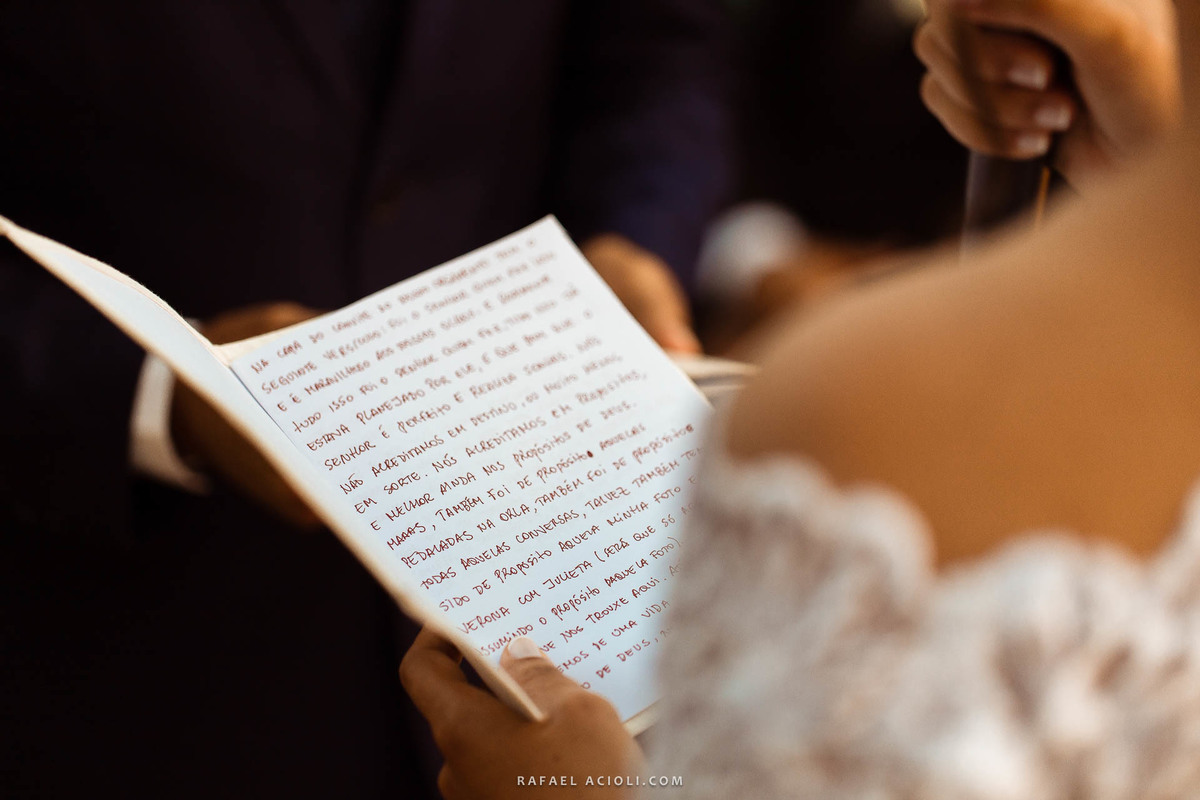 NA CAPA DO CONVITE DE NOSSO CASAMENTO TEM O
SEGUINTE VERSÍCULO: FOI O SENHOR QUEM FEZ ISSO
E É MARAVILHOSO AOS NOSSOS OLHOS. E REALMENTE
TUDO ISSO FOI O SENHOR QUEM FEZ, TUDO ISSO JÁ
ESTAVA PLANEJADO POR ELE, E QUE BOM QUE O
SENHOR É PERFEITO E REALIZA SONHOS. NÓS
NÃO ACREDITAMOS EM DESTINO, OU MUITO MENOS
EM SORTE. NÓS ACREDITAMOS EM PROPÓSITOS,
E MELHOR AINDA NOS PROPÓSITOS DE DEUS.
MAAS, TAMBÉM FOI DE PROPÓSITO AQUELAS
PEDALADAS NA ORLA, TAMBÉM FOI DE PROPÓSITO
TODAS AQUELAS CONVERSAS, TALVEZ TAMBÉM
SIDO DE PROPÓSITO AQUELA MINHA FOTO
VERONA COM JULIETA (SERÁ QUE SÓ
SSUMINDO O PROPÓSITO DAQUELA FOTO)
UE NOS TROUXE AQUI.
EMOS DE UMA VIDA
DE DEUS,
RAFAEL ACIOLI.COM